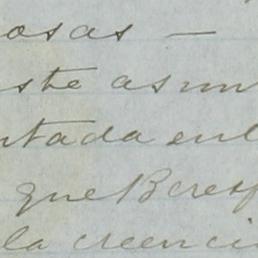 osas —
ste asun
ntada en l
que Beresf
la creenci